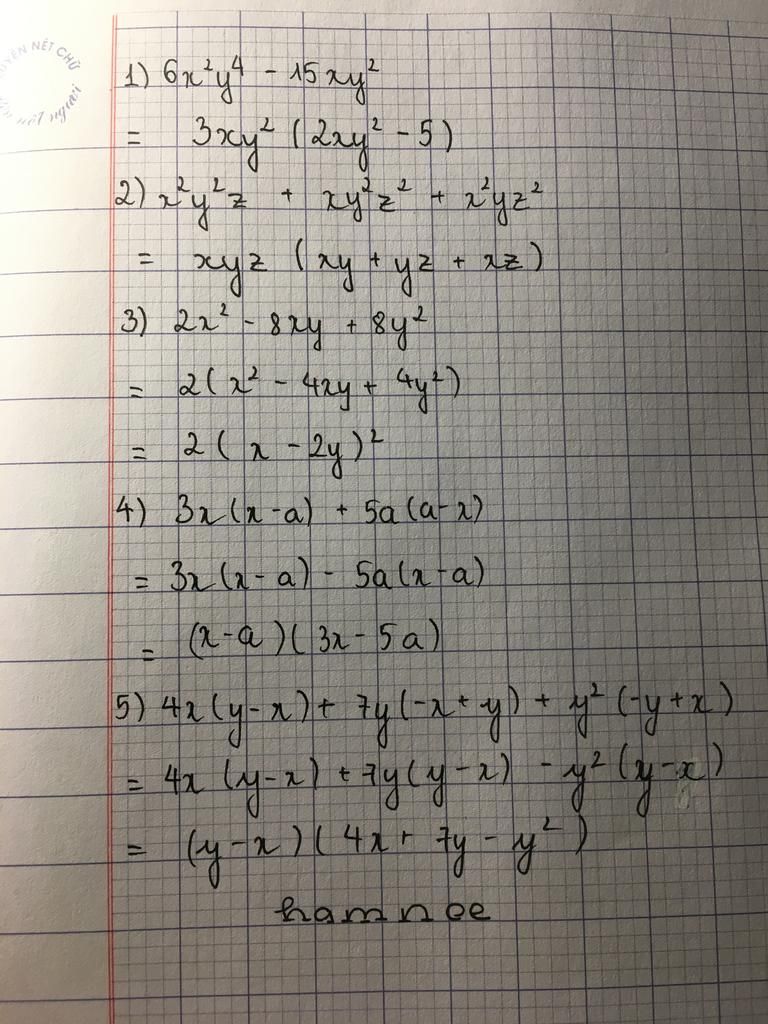 UYỆN NÉT CHỮ
nết người
1) 6x²y⁴ - 15xy²
= 3xy² (2xy² - 5)
2) x²y²z + xy²z² + x²yz²
= xyz (xy + yz + xz)
3) 2x² - 8xy + 8y²
= 2(x² - 4xy + 4y²)
= 2(x - 2y)²
4) 3x(x-a) + 5a(a-x)
= 3x(x-a) - 5a(x-a)
= (x-a)(3x - 5a)
5) 4x(y-x) + 7y(-x+y) + y²(-y+x)
= 4x(y-x) + 7y(y-x) - y²(y-x)
= (y-x)(4x + 7y - y²)
hamnoe